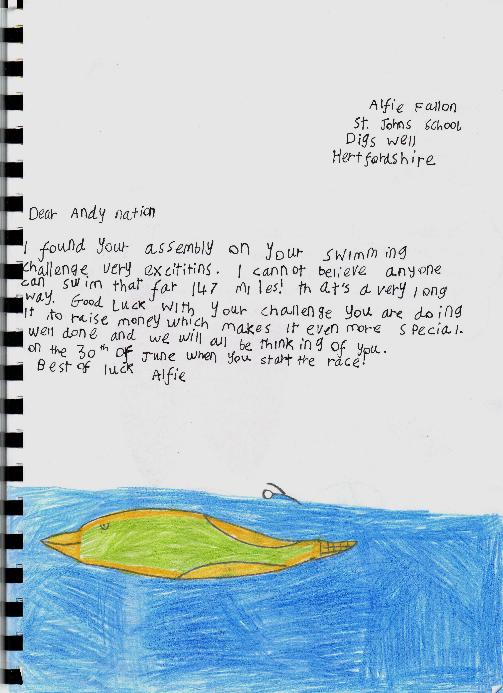 Alfie Fallon
St. Johns School
Digs well
Hertfordshire
Dear Andy nation
I found your assembly on your swimming
challenge very excititins. I cannot believe anyone
can swim that far 147 miles! that's a very long
way. Good Luck with your challenge you are doing
it to raise money which makes it even more special.
well done and we will all be thinking of you.
on the 30th of June when you start the race!
Best of luck Alfie